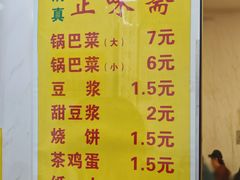 清真
正味斋
锅巴菜(大) 7元
锅巴菜(小) 6元
豆浆 1.5元
甜豆浆 2元
烧饼 1.5元
茶鸡蛋 1.5元